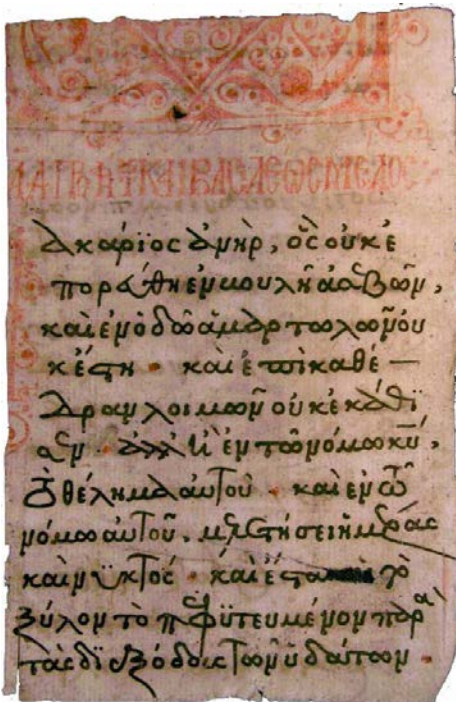 ΔΑΥΙΔ ΠΡΟΦΗΤΟΥ ΚΑΙ ΒΑΣΙΛΕΩΣ ΜΕΛΟΣ
ακάριος ἀνὴρ, ὃς οὐκ ἐ
πορεύθη ἐν βουλῆ ἀσεβῶν,
καὶ ἐν ὁδῶ ἁμαρτωλῶν οὐ
κ ἔστη · καὶ ἐπὶ καθέ
δραν λοιμῶν οὐκ ἐκάθϊ
σεν · ἀλλ' ἢ ἐν τῶ νόμω κυ,
τὸ θέλημα αὐτοῦ · καὶ ἐν τῶ
νόμω αὐτοῦ. μελετήσει ἡμέρας
καὶ νϋκτός · καὶ ἔσται τὸ
ξύλον τὸ πεφϋτευμένον παρὰ
τὰς διεξόδοις τῶν ὑδάτων ·